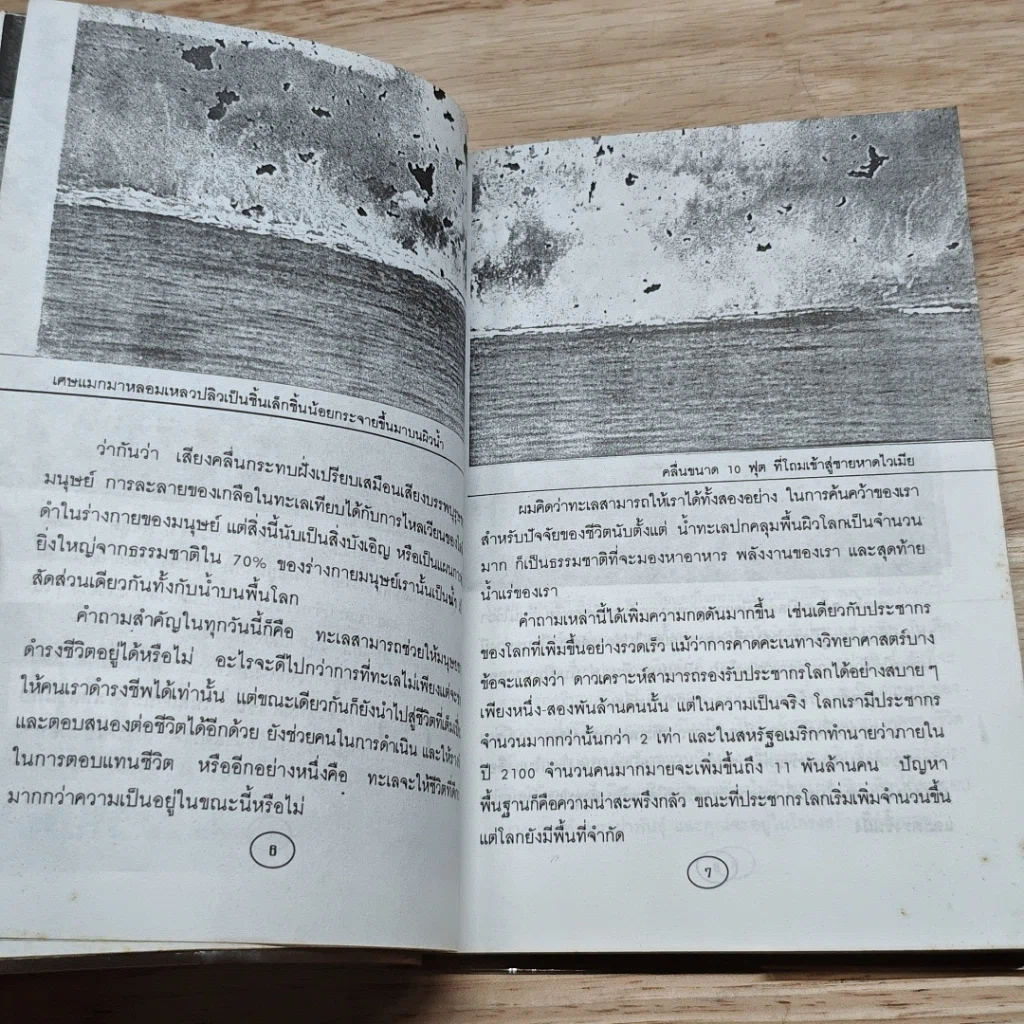 เศษแมกมาหลอมเหลวปลิวเป็นชิ้นเล็กชิ้นน้อยกระจายขึ้นมาบนผิวน้ำ
ว่ากันว่า เสียงคลื่นกระทบฝั่งเปรียบเสมือนเสียงบรรพบุรุษ
มนุษย์ การละลายของเกลือในทะเลเทียบได้กับการไหลเวียนของ
ดำในร่างกายของมนุษย์ แต่สิ่งนี้นับเป็นสิ่งบังเอิญ หรือเป็นแผนการ
ยิ่งใหญ่จากธรรมชาติใน 70% ของร่างกายมนุษย์เรานั้นเป็นน้ำ
สัดส่วนเดียวกันทั้งกับน้ำบนพื้นโลก
คำถามสำคัญในทุกวันนี้ก็คือ ทะเลสามารถช่วยให้มนุษย์
ดำรงชีวิตอยู่ได้หรือไม่ อะไรจะดีไปกว่าการที่ทะเลไม่เพียงแต่จะ
ให้คนเราดำรงชีพได้เท่านั้น แต่ขณะเดียวกันก็ยังนำไปสู่ชีวิตที่
และตอบสนองต่อชีวิตได้อีกด้วย ยังช่วยคนในการดำเนิน และให้
ในการตอบแทนชีวิต หรืออีกอย่างหนึ่งคือ ทะเลจะให้ชีวิตที่
มากกว่าความเป็นอยู่ในขณะนี้หรือไม่
6
คลื่นขนาด 10 ฟุต ที่โถมเข้าสู่ชายหาดไวเมีย
ผมคิดว่าทะเลสามารถให้เราได้ทั้งสองอย่าง ในการค้นคว้าของเรา
สำหรับปัจจัยของชีวิตนับตั้งแต่ น้ำทะเลปกคลุมพื้นผิวโลกเป็นจำนวน
มาก ก็เป็นธรรมชาติที่จะมองหาอาหาร พลังงานของเรา และสุดท้าย
น้ำแร่ของเรา
คำถามเหล่านี้ได้เพิ่มความกดดันมากขึ้น เช่นเดียวกับประชากร
ของโลกที่เพิ่มขึ้นอย่างรวดเร็ว แม้ว่าการคาดคะเนทางวิทยาศาสตร์บาง
ข้อจะแสดงว่า ดาวเคราะห์สามารถรองรับประชากรโลกได้อย่างสบายๆ
เพียงหนึ่ง-สองพันล้านคนนั้น แต่ในความเป็นจริง โลกเรามีประชากร
จำนวนมากกว่านั้นกว่า 2 เท่า และในสหรัฐอเมริกาทำนายว่าภายใน
ปี 2100 จำนวนคนมากมายจะเพิ่มขึ้นถึง 11 พันล้านคน ปัญหา
พื้นฐานก็คือความน่าสะพรึงกลัว ขณะที่ประชากรโลกเริ่มเพิ่มจำนวนขึ้น
แต่โลกยังมีพื้นที่จำกัด
7